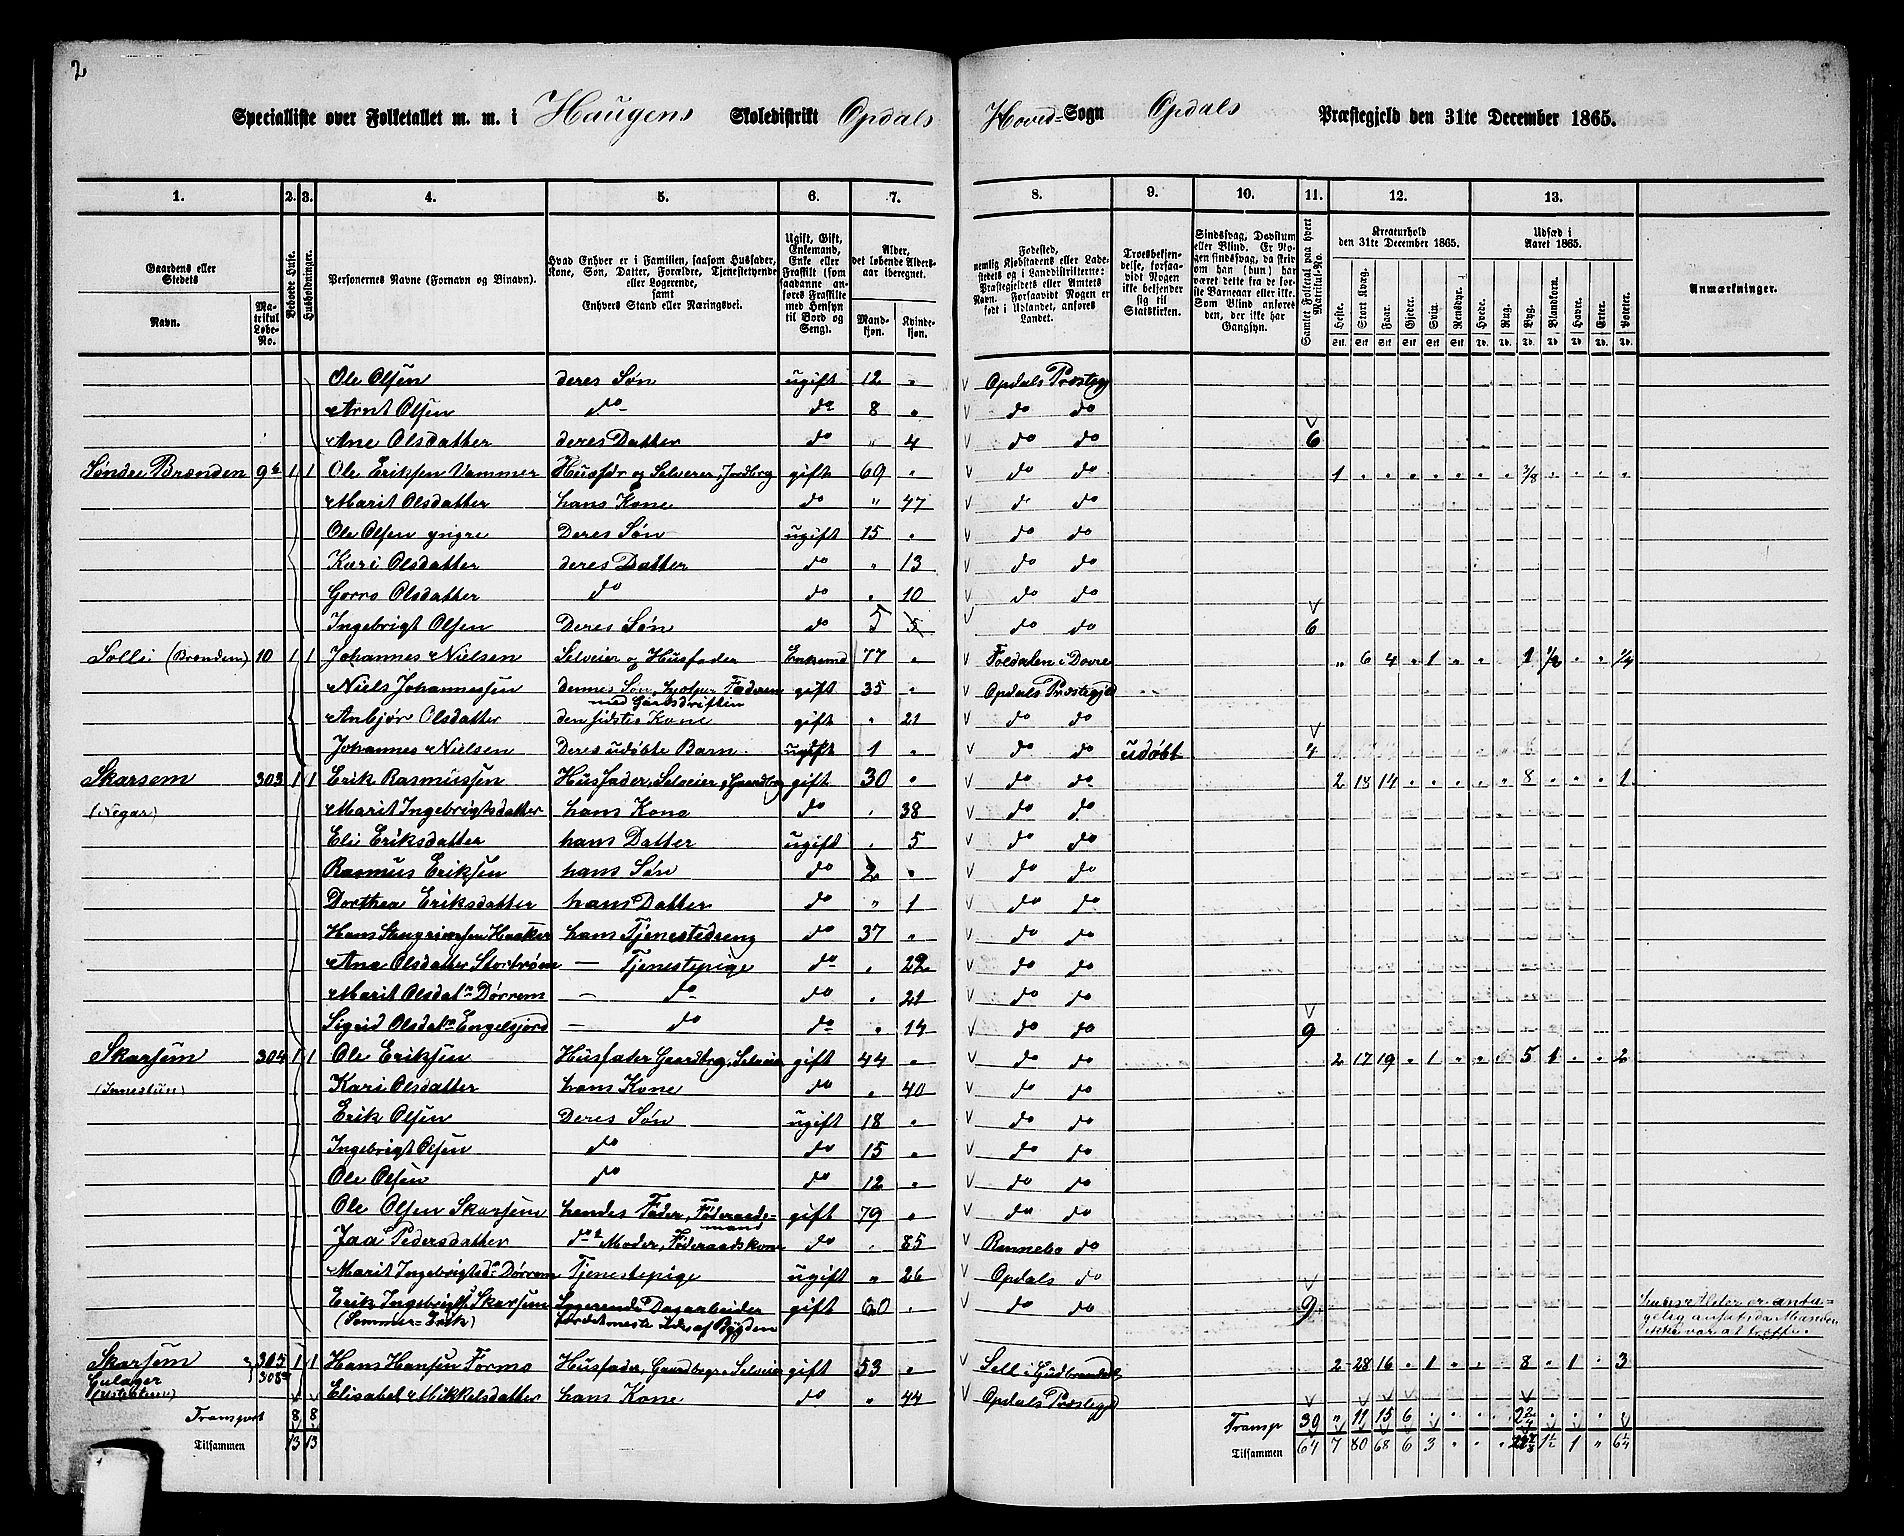 2
Specialliste over Folketallet m. m. i Haugens Skoledistrikt Opdals Hoved-Sogn Opdals Præstegjeld den 31te December 1865.
1. 2. 3. 4. 5. 6. 7. 8. 9. 10. 11. 12. 13.
Gaardens eller Stedets Navn. Matrikul Løbe-No.
Beboede Huse.
Husholdninger.
Personernes Navne (Fornavn og Binavn).
Hvad Enhver er i Familien, saasom Husfader, Kone, Søn, Datter, Forældre, Tjenestetyende eller Logerende, samt Enhvers Stand eller Næringsvei.
Ugift, Gift, Enkemand, Enke eller Fraskilt (som saadanne anføres Fraskilte med Hensyn til Bord og Seng).
Alder, det løbende Alders-aar iberegnet. Mandkjøn. Kvindekjøn.
Fødested, nemlig Kjøbstadens eller Ladestedets og i Landdistrikterne: Præstegjeldets eller Amtets Navn. Forsaavidt Nogen er født i Udlandet, anføres Landet.
Troesbekjendelse, forsaavidt Nogen ikke bekjender sig til Statskirken.
Sindssvag, Døvstum eller Blind. Er Nogen sindssvag, da skrives om han (hun) har været dette fra de første Barneaar eller ikke. Som Blind anføres den, der ikke har Gangsyn.
Samlet Folketal paa hvert Matrikul-No.
Kreaturhold den 31te December 1865. Heste. Stort Kvæg. Faar. Gjeder. Svin. Rensdyr.
Udsæd i Aaret 1865. Hvede. Rug. Byg. Blandkorn. Havre. Erter. Poteter.
Anmærkninger.
Ole Olsen deres Søn ugift 12 " Opdals Præstegj
Arnt Olsen do do 8 " do do
Ane Olsdatter deres Datter do " 4 do do 6
Søndre Brænden 9b 1 1 Ole Eriksen Vammer Husfdr og Selveier, Jordbrg gift 69 " do do 1 " " " " " " " 3/8 " " " "
Marit Olsdatter hans Kone do " 47 do do
Ole Olsen yngre Deres Søn ugift 15 " do do
Kari Olsdatter deres Datter do " 13 do do
Gorro Olsdatter do do " 10 do do
Ingebrigt Olsen Deres Søn do 5 do do 6
Solli (Brænden) 10 1 1 Johannes Nielsen Selveier og Husfader Enkemd 77 " Foldalen i Dovre " 6 4 " 1 " " " 1 1/2 " " 1/4
Niels Johannessen dennes Søn, hjælper Faderen med Gaardsdriften gift 35 " Opdals Præstegjld
Anbjør Olsdatter den sidstes Kone gift " 21 do do
Johannes Nielsen Deres udøbte Barn ugift 1 " do do udøbt 4
Skarsem 303 1 1 Erik Rasmussen Husfader, Selveier, Gaardbrg gift 30 " do do 2 18 14 " " " " " 8 " " " 1
(Negar) Marit Ingebrigtsdatter hans Kone do " 38 do do
Eli Eriksdatter hans Datter ugift " 5 do do
Rasmus Eriksen hans Søn do 2 " do do
Dorthea Eriksdatter hans Datter do " 1 do do
Hans Stengrimsen Haaker hans Tjenestedreng do 37 " do do
Ane Olsdatter Storbrøen — Tjenestepige do " 22 do do
Marit Olsdatr Dørrem — do do " 21 do do
Sigrid Olsdatr Engelsjord — do do " 14 do do 9
Skarsem 304 1 1 Ole Eriksen Husfader Gaardbrg, Selveier gift 44 " do do 2 17 19 " 1 " " " 5 1 " " 2
(Innestun) Kari Olsdatter hans Kone do " 40 do do
Erik Olsen Deres Søn ugift 18 " do do
Ingebrigt Olsen do do 15 " do do
Ole Olsen do do 12 " do do
Ole Olsen Skarsem hendes Fader, Føderaadsmand gift 79 " do do
Jaa Pedersdatter do Moder, Føderaadskone do " 85 Rennebo do
Marit Ingebrigtsdr Dørrem Tjenestepige ugift " 26 Opdals do
Erik Ingebrigts. Skarsem Logerende Dagarbeider gift 60 " do do 9
(Sommer-Erik)
Skarsem 305 1 1 Hans Hansen Formo Husfader, Gaardbrgr, Selveier gift 53 " Sell i Gudbrandsd 2 28 16 " 1 " " " 8 " 1 " 3
308 Elisabet Mikkelsdatter hans Kone do " 44 Opdals Præstegjd
Transport 8 8 Transp 30 " 11 15 6
Tilsammen 13 13 Tilsammen 64 7 80 68 6 3 " " " 1½ 1 " 6¼